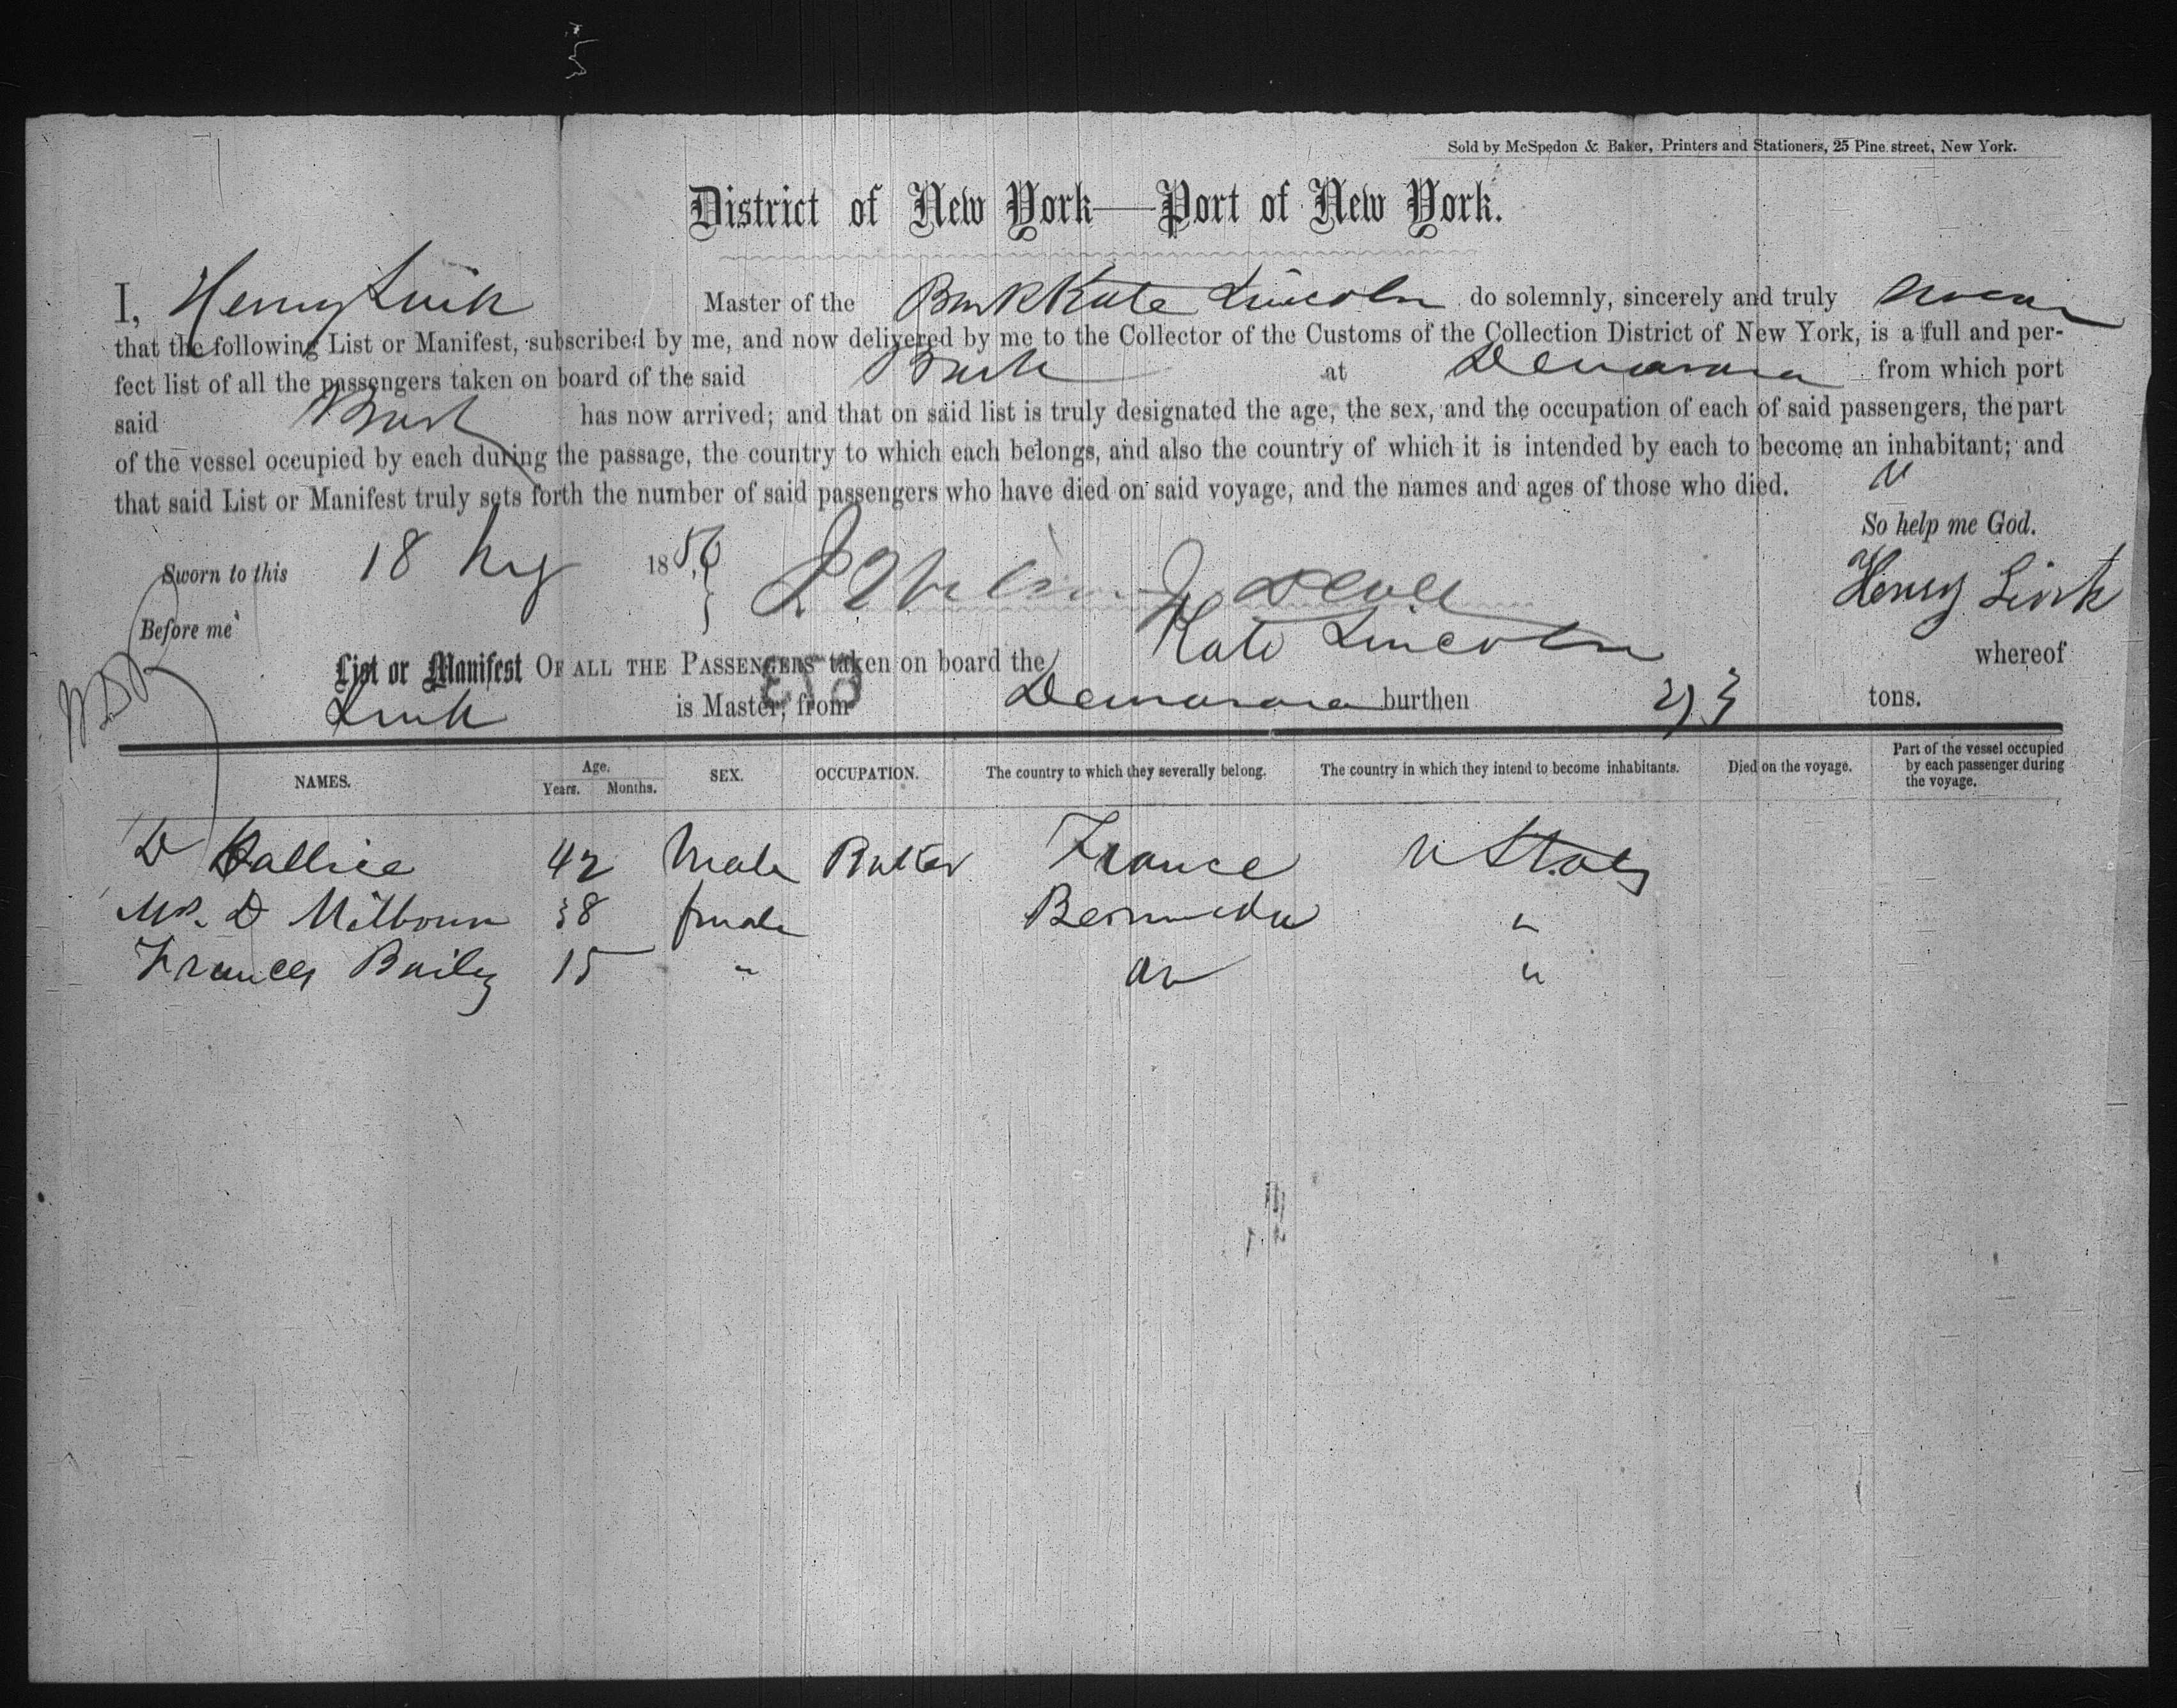 Sold by McSpedon & Baker, Printers and Stationers, 25 Pine street, New York.
District of New York—Port of New York.
I, Henry Link Master of the Bark Kate Lincoln do solemnly, sincerely and truly swear
that the following List or Manifest, subscribed by me, and now delivered by me to the Collector of the Customs of the Collection District of New York, is a full and per-
fect list of all the passengers taken on board of the said Bark at Demarara from which port
said Bark has now arrived; and that on said list is truly designated the age, the sex, and the occupation of each of said passengers, the part
of the vessel occupied by each during the passage, the country to which each belongs, and also the country of which it is intended by each to become an inhabitant; and
that said List or Manifest truly sets forth the number of said passengers who have died on said voyage, and the names and ages of those who died.
So help me God.
Sworn to this 18 1856 Henry Link
Before me
List or Manifest OF ALL THE PASSENGERS taken on board the Kate Lincoln whereof
Link is Master, from Demarara burthen tons.
NAMES. Age. Years. Months. SEX. OCCUPATION. The country to which they severally belong. The country in which they intend to become inhabitants. Died on the voyage. Part of the vessel occupied by each passenger during the voyage.
D 42 Male France U States
Mrs. D Milbourn 38 female Bermuda "
Frances Baily 15 " "